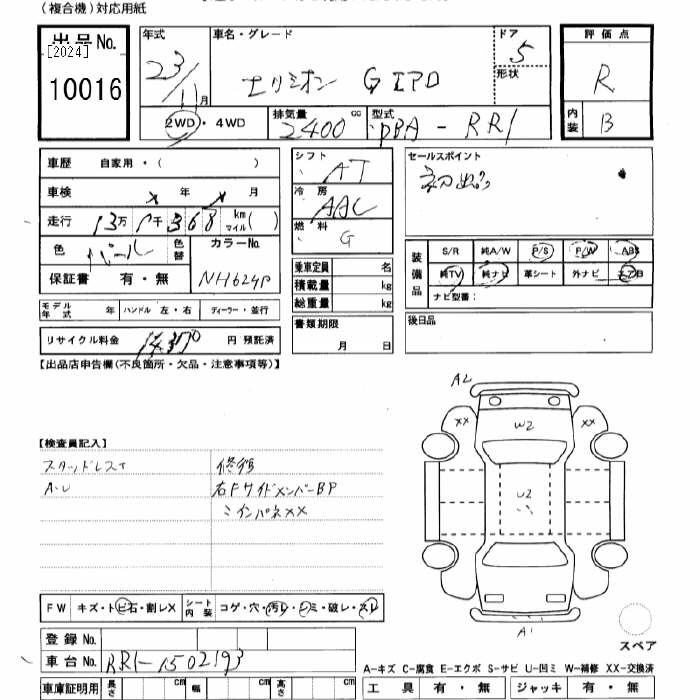 (複合機)対応用紙
出品No.
[2024]
10016
年式 23/11月
車名・グレード エリシオン G エアロ
ドア 5
形状
評価点 R
内装 B
2WD・4WD
排気量 2400 cc
型式 DBA-RR1
車歴 自家用・( )
車検 X 年 X 月
走行 13万 7千 368 km マイル( )
色 パール 色替
カラーNo. NH624P
保証書 有・無
モデル年式 年 ハンドル 左・右 ディーラー・並行
リサイクル料金 円 預託済
シフト AT
冷房 AAC
燃料 G
乗車定員 名
積載量 kg
総重量 kg
書類期限
月 日
セールスポイント
装備品
S/R 純A/W P/S P/W ABS
純TV 純ナビ 革シート 外ナビ エアB
ナビ型番:
後日品
【出品店申告欄(不良箇所・欠品・注意事項等)】
【検査員記入】
スタッドレス
修復
右FサイドメンバーBP
インパネXX
A2
XX
W2
XX
U2
A1
スペア
FW キズ・トビ石・割レX シート内装 コゲ・穴・汚レ・シミ・破レ・スレ
登録No.
車台No. RR1-1502193
車庫証明用 長さ cm 幅 cm 高さ cm
A-キズ C-腐食 E-エクボ S-サビ U-凹ミ W-補修 XX-交換済
工具 有・無 ジャッキ 有・無